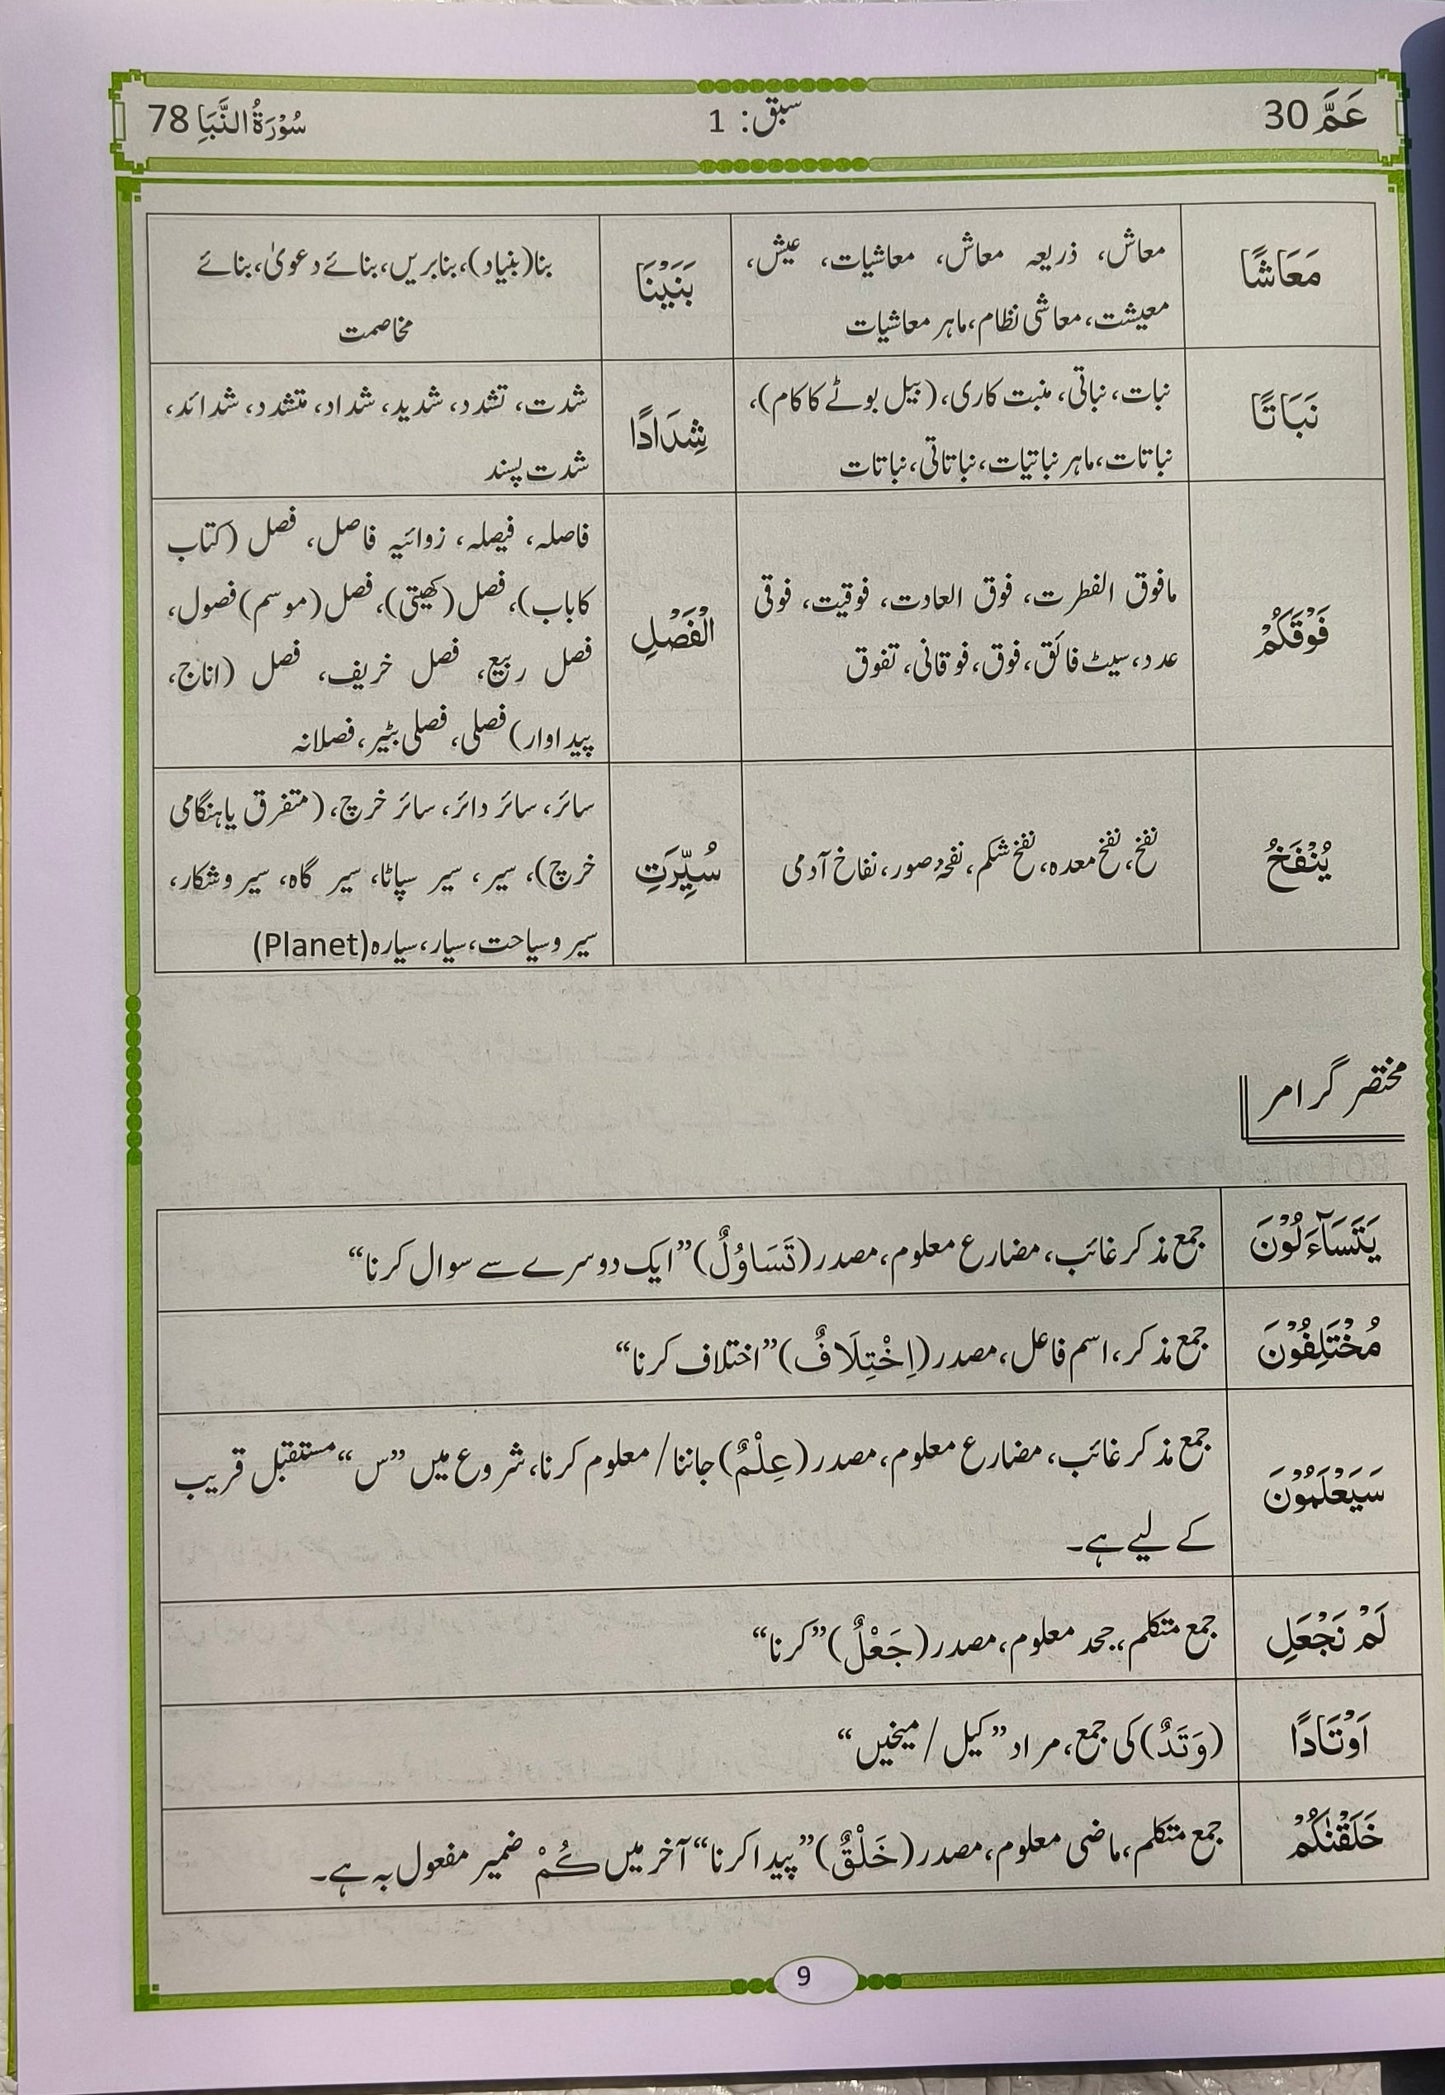 عَمَّ 30
سبق: 1
سُوْرَةُ النَّبَاِ 78
مَعَاشًا
معاش، ذریعہ معاش، معاشیات، عیش،
معیشت، معاشی نظام، ماہر معاشیات
بَنَيْنَا
بنا (بنیاد)، بنابریں، بنائے دعویٰ، بنائے
مخاصمت
نَبَاتًا
نبات، نباتی، منبت کاری، (بیل بوٹے کا کام)،
نباتات، ماہر نباتیات، نباتاتی، نباتات
شِدَادًا
شدت، تشدد، شدید، شداد، متشدد، شدائد،
شدت پسند
فَوْقَكُمْ
مافوق الفطرت، فوق العادت، فوقیت، فوقی
عدد، سیٹ فائق، فوق، فوقانی، تفوق
الْفَصْلِ
فاصلہ، فیصلہ، زوائیہ فاصل، فصل (کتاب
کا باب)، فصل (کھیتی)، فصل (موسم) فصول،
فصل ربیع، فصل خریف، فصل (اناج،
پیداوار) فصلی، فصلی بٹیر، فصلانہ
يُنْفَخُ
نفخ، نفخ معدہ، نفخ شکم، نفخۂ صور، نفاخ آدمی
سُيِّرَتِ
سائر، سائر دائر، سائر خرچ، (متفرق یا ہنگامی
خرچ)، سیر، سیر سپاٹا، سیر گاہ، سیر و شکار،
سیر و سیاحت، سیار، سیارہ (Planet)
مختصر گرامر
يَتَسَآءَلُوْنَ
جمع مذکر غائب، مضارع معلوم، مصدر (تَسَاوُلٌ) ”ایک دوسرے سے سوال کرنا“
مُخْتَلِفُوْنَ
جمع مذکر، اسم فاعل، مصدر (اِخْتِلَافٌ) ”اختلاف کرنا“
سَيَعْلَمُوْنَ
جمع مذکر غائب، مضارع معلوم، مصدر (عِلْمٌ) جاننا / معلوم کرنا، شروع میں ”س“ مستقبل قریب
کے لیے ہے۔
لَمْ نَجْعَلِ
جمع متکلم، جحد معلوم، مصدر (جَعْلٌ) ”کرنا“
اَوْتَادًا
(وَتَدٌ) کی جمع، مراد ”کیل / میخیں“
خَلَقْنٰكُمْ
جمع متکلم، ماضی معلوم، مصدر (خَلْقٌ) ”پیدا کرنا“ آخر میں كُمْ ضمیر مفعول بہ ہے۔
9